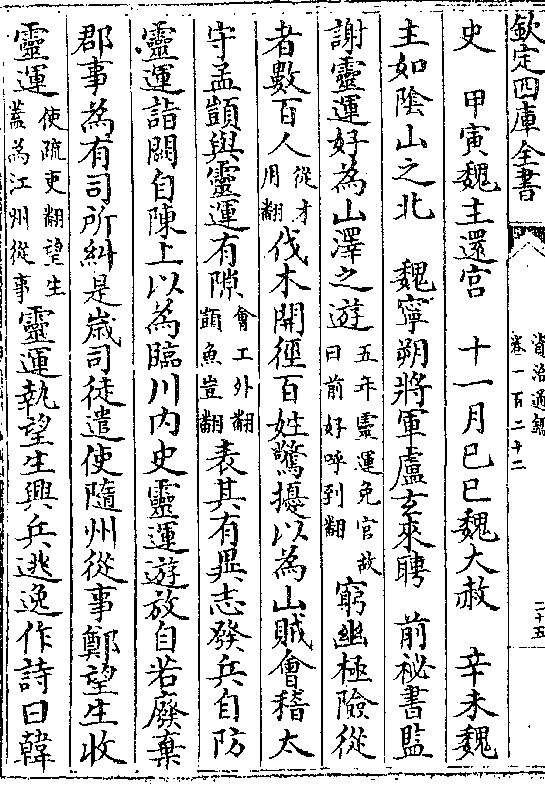 欽定四庫全書
資治通鑑
卷一百二十二
二十五
史 甲寅魏主還宫 十一月己巳魏大赦 辛未魏
主如陰山之北 魏寧朔將軍盧玄來聘 前祕書監
謝靈運好為山澤之遊五年靈運免官故曰前好呼到翻窮幽極險從
者數百人從才用翻伐木開徑百姓驚擾以為山賊會稽太
守孟顗與靈運有隙會工外翻顗魚豈翻表其有異志發兵自防
靈運詣闕自陳上以為臨川内史靈運遊放自若廢棄
郡事為有司所糾是歲司徒遣使隨州從事鄭望生收
靈運使疏吏翻望生蓋為江州從事靈運執望生興兵逃逸作詩曰韓